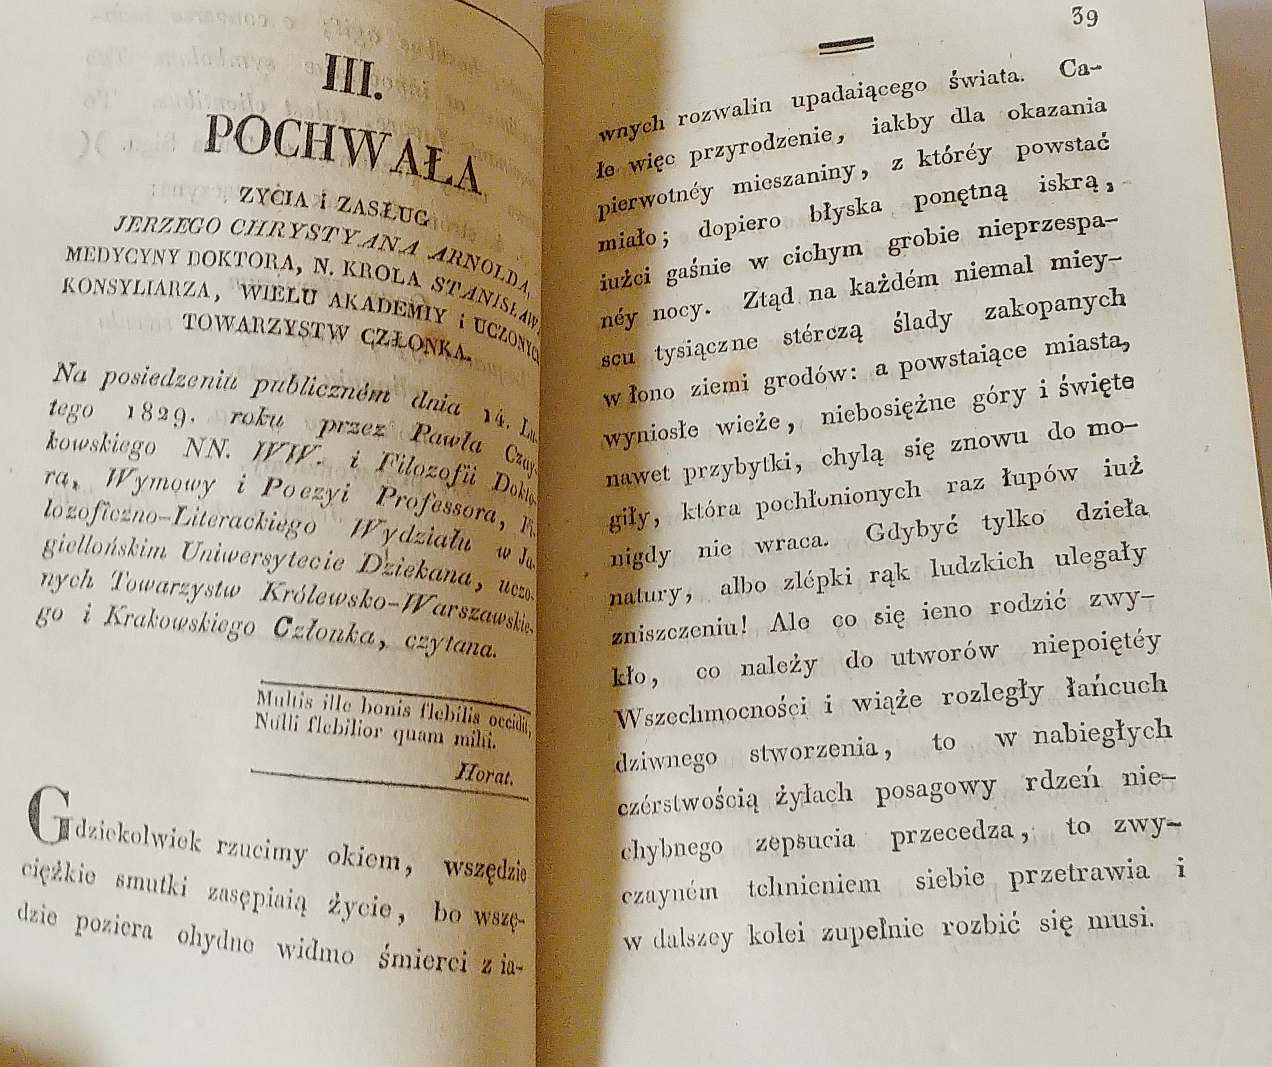 III.
POCHWAŁA
ZYCIA i ZASŁUG
JERZEGO CHRYSTYANA ARNOLDA,
MEDYCYNY DOKTORA, N. KROLA STANISŁAW
KONSYLIARZA, WIELU AKADEMIY i UCZONYC
TOWARZYSTW CZŁONKA.
Na posiedzeniu publiczném dnia 14. Lu-
tego 1829. roku przez Pawła Czay-
kowskiego NN. WW. i Filozofii Dokto-
ra, Wymowy i Poezyi Professora, Fi-
lozoficzno-Literackiego Wydziału w Ja-
giellońskim Uniwersytecie Dziekana, uczo-
nych Towarzystw Królewsko-Warszawskie-
go i Krakowskiego Członka, czytana.
Multis ille bonis flebilis occidit,
Nulli flebilior quam mihi.
Horat.
Gdziekolwiek rzucimy okiem, wszędzie
ciężkie smutki zasępiaią życie, bo wszę-
dzie poziera ohydne widmo śmierci z ia-
39
wnych rozwalin upadaiącego świata. Ca-
łe więc przyrodzenie, iakby dla okazania
pierwotnéy mieszaniny, z któréy powstać
miało; dopiero błyska ponętną iskrą,
iużci gaśnie w cichym grobie nieprzespa-
néy nocy. Ztąd na każdém niemal miey-
scu tysiączne stérczą ślady zakopanych
w łono ziemi grodów: a powstaiące miasta,
wyniosłe wieże, niebosiężne góry i święte
nawet przybytki, chylą się znowu do mo-
giły, która pochłonionych raz łupów iuż
nigdy nie wraca. Gdybyć tylko dzieła
natury, albo zlépki rąk ludzkich ulegały
zniszczeniu! Ale co się ieno rodzić zwy-
kło, co należy do utworów niepoiętéy
Wszechmocności i wiąże rozległy łańcuch
dziwnego stworzenia, to w nabiegłych
czérstwością żyłach posagowy rdzeń nie-
chybnego zepsucia przecedza, to zwy-
czayném tchnieniem siebie przetrawia i
w dalszey kolei zupełnie rozbić się musi.